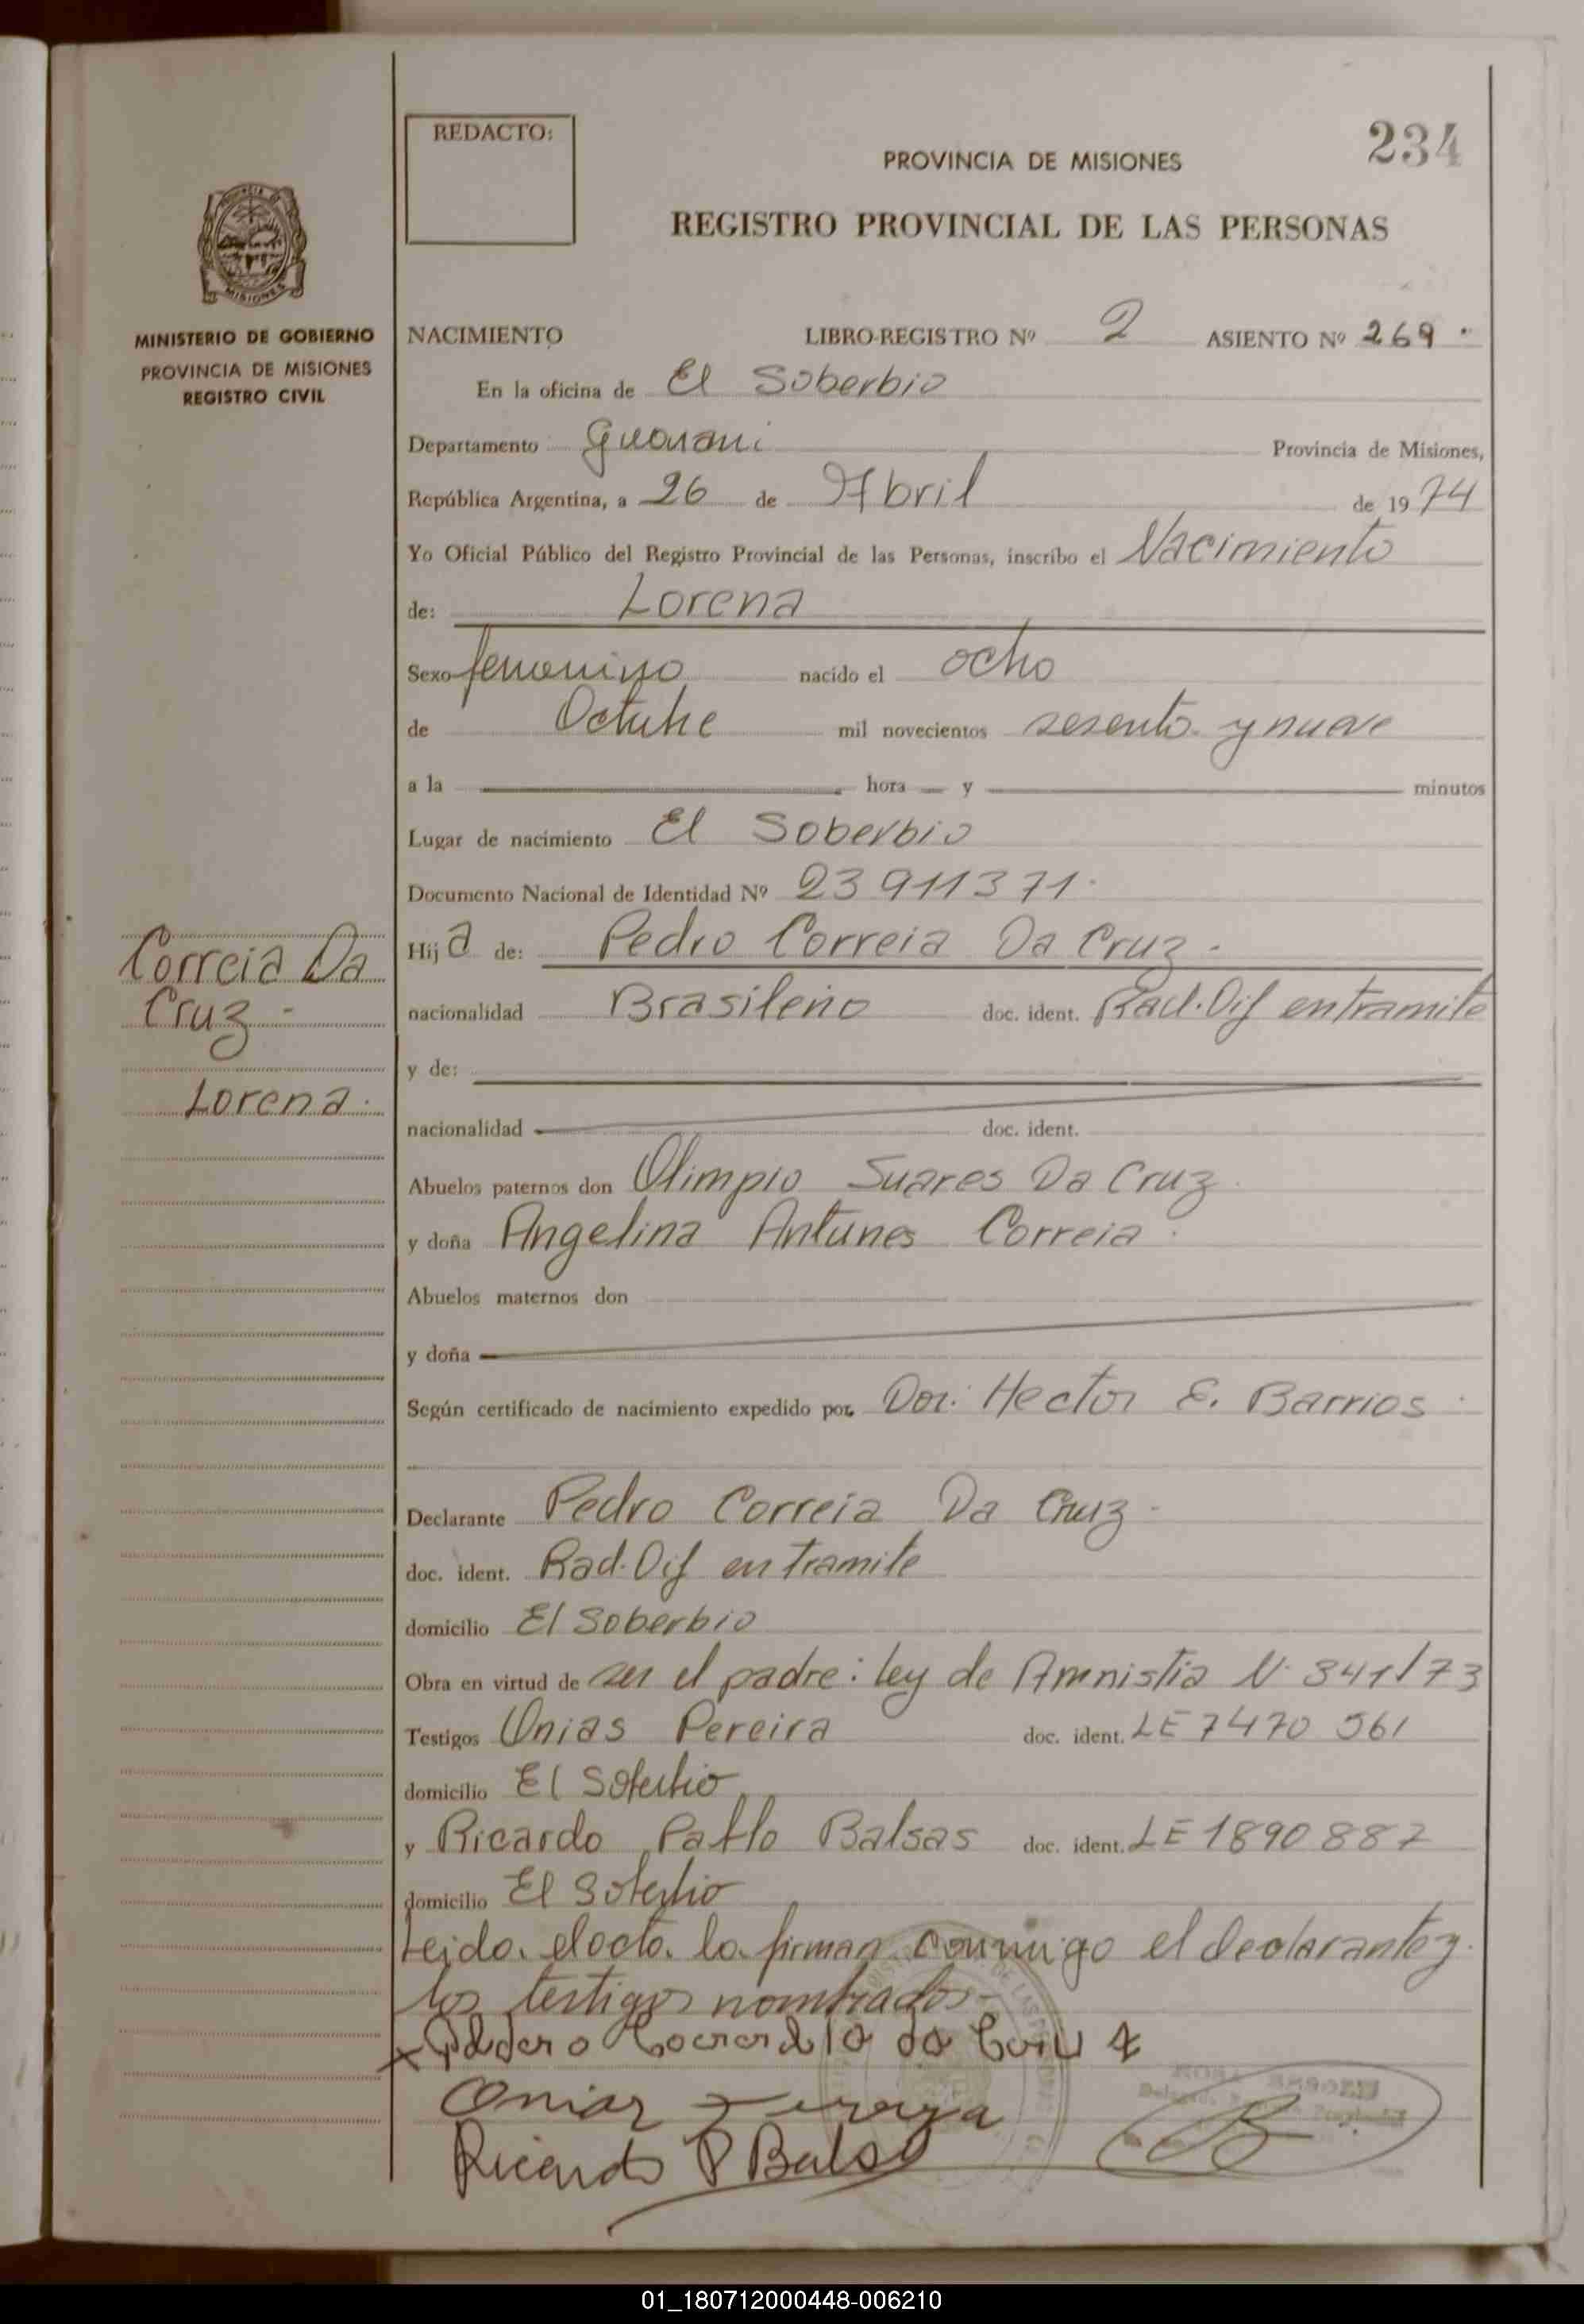 REDACTO:
234
PROVINCIA DE MISIONES
REGISTRO PROVINCIAL DE LAS PERSONAS
MISIONES
MINISTERIO DE GOBIERNO
PROVINCIA DE MISIONES
REGISTRO CIVIL
NACIMIENTO LIBRO-REGISTRO Nº 2 ASIENTO Nº 269.
En la oficina de El Soberbio
Departamento Guarani Provincia de Misiones,
República Argentina, a 26 de Abril de 1974
Yo Oficial Público del Registro Provincial de las Personas, inscribo el Nacimiento
de: Lorena
Sexo femenino nacido el ocho
de Octubre mil novecientos sesenta y nueve
a la hora y minutos
Lugar de nacimiento El Soberbio
Documento Nacional de Identidad Nº 23911371.
Correia Da
Cruz -
Lorena.
Hija de: Pedro Correia Da Cruz -
nacionalidad Brasileño doc. ident. Rad. Dif en tramite
y de:
nacionalidad doc. ident.
Abuelos paternos don Olimpio Suares Da Cruz
y doña Angelina Antunes Correia.
Abuelos maternos don
y doña
Según certificado de nacimiento expedido por Dor. Hector E. Barrios
Declarante Pedro Correia Da Cruz -
doc. ident. Rad. Dif en tramite
domicilio El Soberbio
Obra en virtud de ser el padre: ley de Amnistia N. 841/73
Testigos Onias Pereira doc. ident. LE 7470 561
domicilio El Soberbio
y Ricardo Pablo Balsas doc. ident. LE 1890 887
domicilio El Soberbio
Leida el acta la firman conmigo el declarante y
los testigos nombrados -
Onias
Ricardo P Balsa
01_180712000448-006210